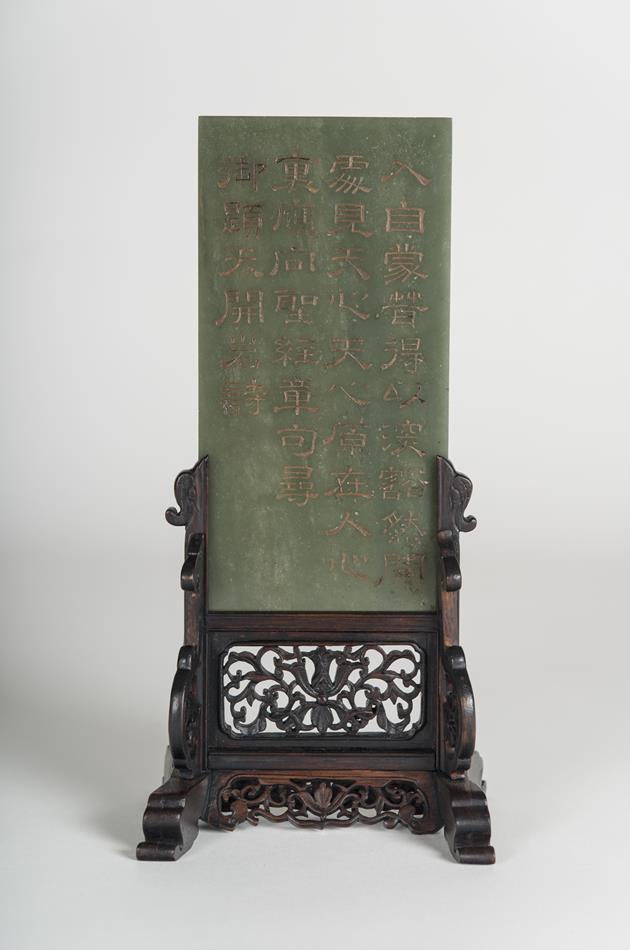 入自蒙茸得以深豁然開
處見天心天心原在人心
寓應向聖經章句尋
御題天開岩詩